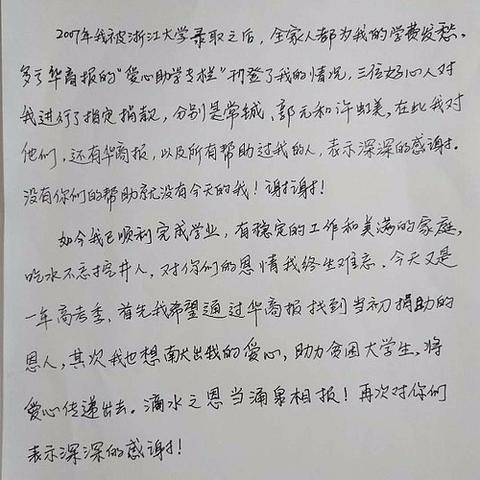 2007年我被浙江大学录取之后，全家人都为我的学费发愁。
多亏华商报的“爱心助学专栏”刊登了我的情况，三位好心人对
我进行了指定捐款，分别是常城、郭元和许虹美，在此我对
他们，还有华商报，以及所有帮助过我的人，表示深深的感谢。
没有你们的帮助就没有今天的我！谢谢！
如今我已顺利完成学业，有稳定的工作和美满的家庭，
吃水不忘挖井人，对你们的恩情我终生难忘。今天又是
一年高考季，首先我希望通过华商报找到当初捐助的
恩人，其次我也想献出我的爱心，助力贫困大学生，将
爱心传递出去。滴水之恩当涌泉相报！再次对你们
表示深深的感谢！